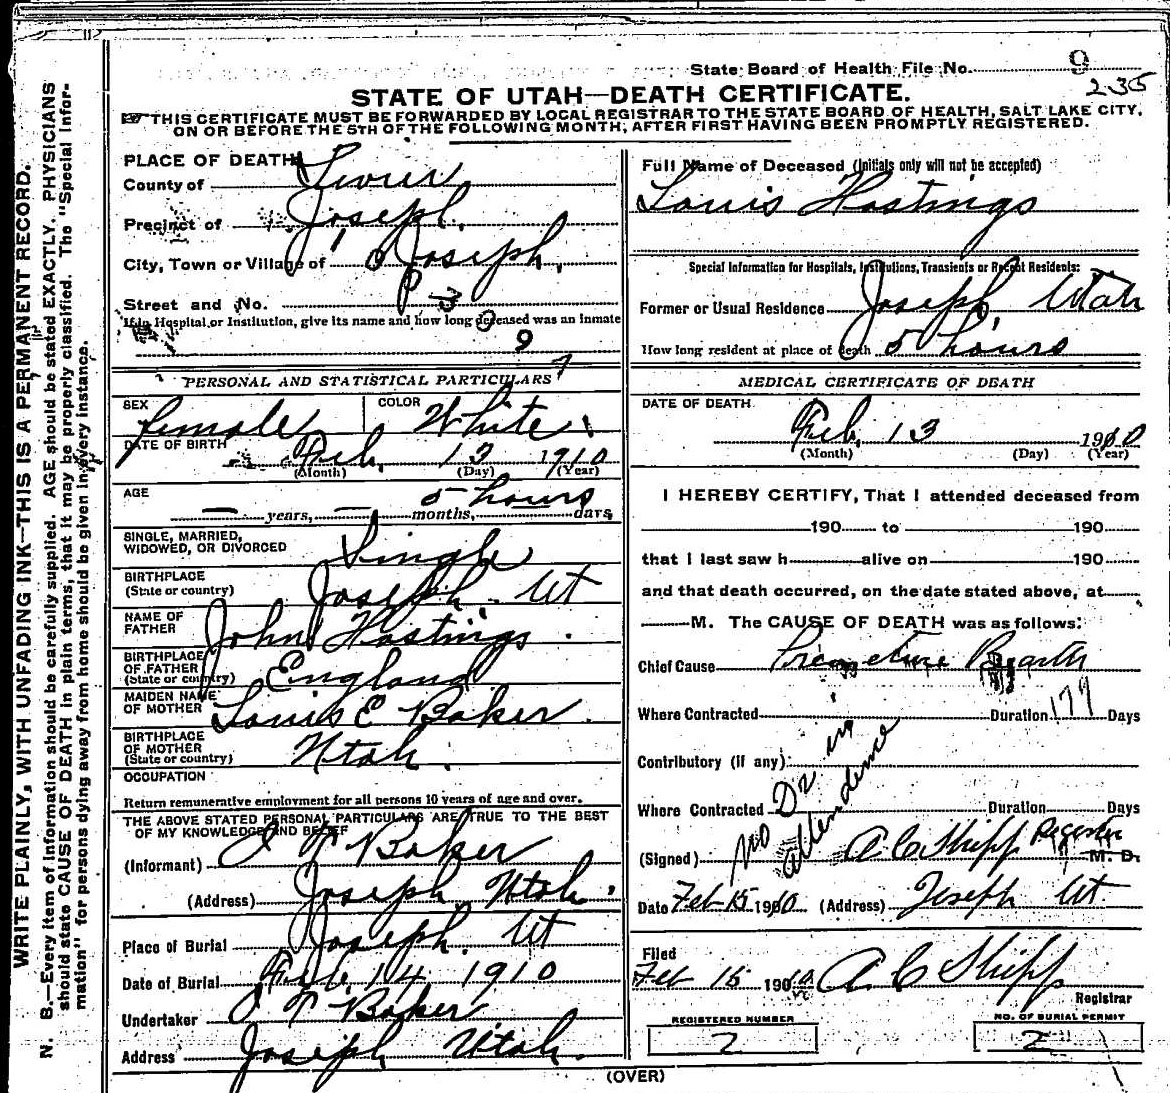 State Board of Health File No. 9
235
STATE OF UTAH—DEATH CERTIFICATE.
THIS CERTIFICATE MUST BE FORWARDED BY LOCAL REGISTRAR TO THE STATE BOARD OF HEALTH, SALT LAKE CITY,
ON OR BEFORE THE 5TH OF THE FOLLOWING MONTH, AFTER FIRST HAVING BEEN PROMPTLY REGISTERED.
WRITE PLAINLY, WITH UNFADING INK—THIS IS A PERMANENT RECORD.
N. B.—Every item of information should be carefully supplied. AGE should be stated EXACTLY. PHYSICIANS
should state CAUSE OF DEATH in plain terms, that it may be properly classified. The "Special Infor-
mation" for persons dying away from home should be given in every instance.
PLACE OF DEATH
County of Sevier
Precinct of Joseph
City, Town or Village of Joseph,
Street and No.
If in Hospital or Institution, give its name and how long deceased was an inmate
9
PERSONAL AND STATISTICAL PARTICULARS
SEX female COLOR White
DATE OF BIRTH Feb. 13 1910
(Month) (Day) (Year)
AGE 5 hours
— years, — months, — days,
SINGLE, MARRIED,
WIDOWED, OR DIVORCED Single
BIRTHPLACE
(State or country) Joseph Ut
NAME OF
FATHER John Hastings.
BIRTHPLACE
OF FATHER
(State or country) England
MAIDEN NAME
OF MOTHER Louis E Baker.
BIRTHPLACE
OF MOTHER
(State or country) Utah.
OCCUPATION
Return remunerative employment for all persons 10 years of age and over.
THE ABOVE STATED PERSONAL PARTICULARS ARE TRUE TO THE BEST
OF MY KNOWLEDGE AND BELIEF
(Informant) Baker
(Address) Joseph, Utah.
Place of Burial Joseph. Ut
Date of Burial Feb. 14 1910
Undertaker Baker
Address Joseph Utah.
Full Name of Deceased (Initials only will not be accepted)
Louis Hastings
Special Information for Hospitals, Institutions, Transients or Recent Residents:
Former or Usual Residence Joseph Utah
How long resident at place of death 5 hours
MEDICAL CERTIFICATE OF DEATH
DATE OF DEATH
Feb, 13 1910
(Month) (Day) (Year)
I HEREBY CERTIFY, That I attended deceased from
190 to 190
that I last saw h alive on 190
and that death occurred, on the date stated above, at
M. The CAUSE OF DEATH was as follows:
Chief Cause Premature Bearth
Where Contracted Duration 179 Days
Contributory (if any)
Where Contracted Duration Days
no Dr in attendence
(Signed) A C Shipp Register M. D.
Date Feb 15 1910 (Address) Joseph Ut
Filed
Feb 15 1910 A C Shipp
Registrar
REGISTERED NUMBER
2
NO. OF BURIAL PERMIT
2
(OVER)